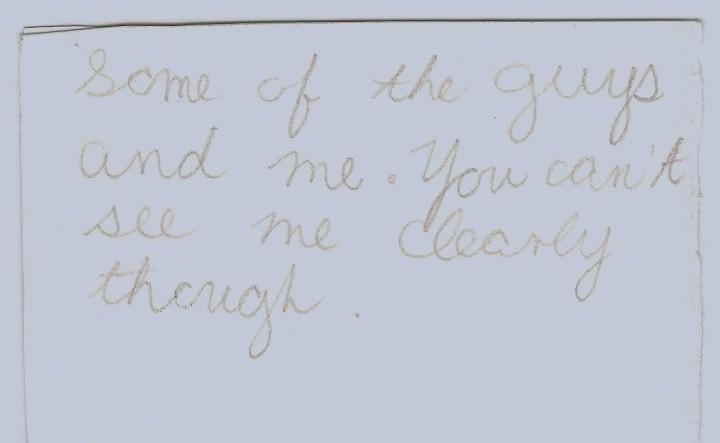 Some of the guys
and me. You can't
see me clearly
though.